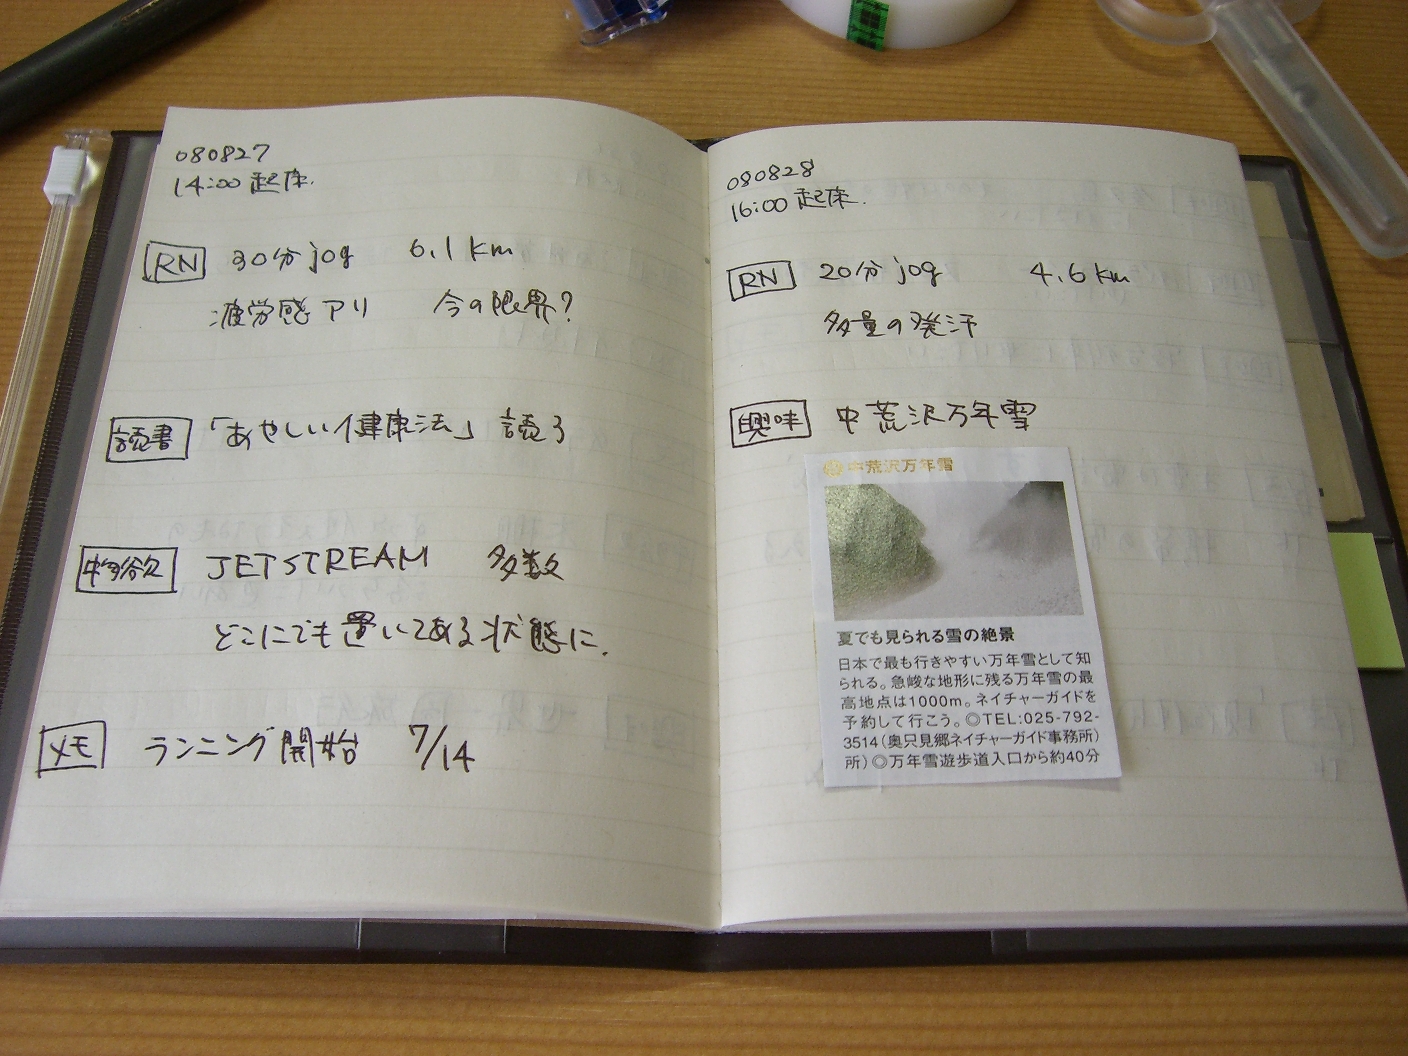 080827
14:00 起床.
RN 30分 jog 6.1 km
疲労感アリ 今の限界?
読書 「あやしい健康法」 読了
物欲 JETSTREAM 多数
どこにでも置いてある状態に.
メモ ランニング開始 7/14
080828
16:00 起床.
RN 20分 jog 4.6 km
多量の発汗
興味 中荒沢万年雪
中荒沢万年雪
夏でも見られる雪の絶景
日本で最も行きやすい万年雪として知
られる。急峻な地形に残る万年雪の最
高地点は1000m。ネイチャーガイドを
予約して行こう。◎TEL:025-792-
3514(奥只見郷ネイチャーガイド事務所)
所)◎万年雪遊歩道入口から約40分